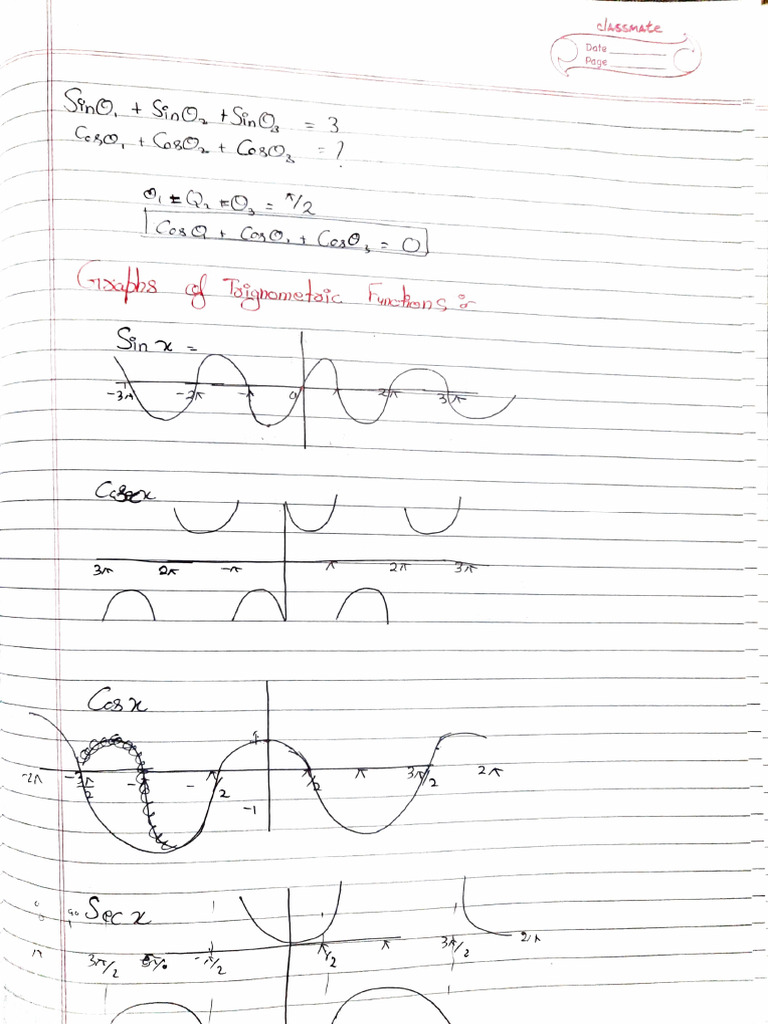 classmate
Date
Page
Sinθ₁ + Sinθ₂ + Sinθ₃ = 3
Cosθ₁ + Cosθ₂ + Cosθ₃ = ?
θ₁ = θ₂ = θ₃ = π/2
Cosθ + Cosθ₁ + Cosθ₃ = 0
Graphs of Trignometric Functions :-
Sin x =
-3π -2π -π 0 π 2π 3π
Cosec x
3π 2π -π π 2π 3π
Cos x
1
-2π -3π/2 - -π/2 π/2 π 3π/2 2π
-1
Sec x
π 3π/2 -π/2 π/2 π 3π/2 2π